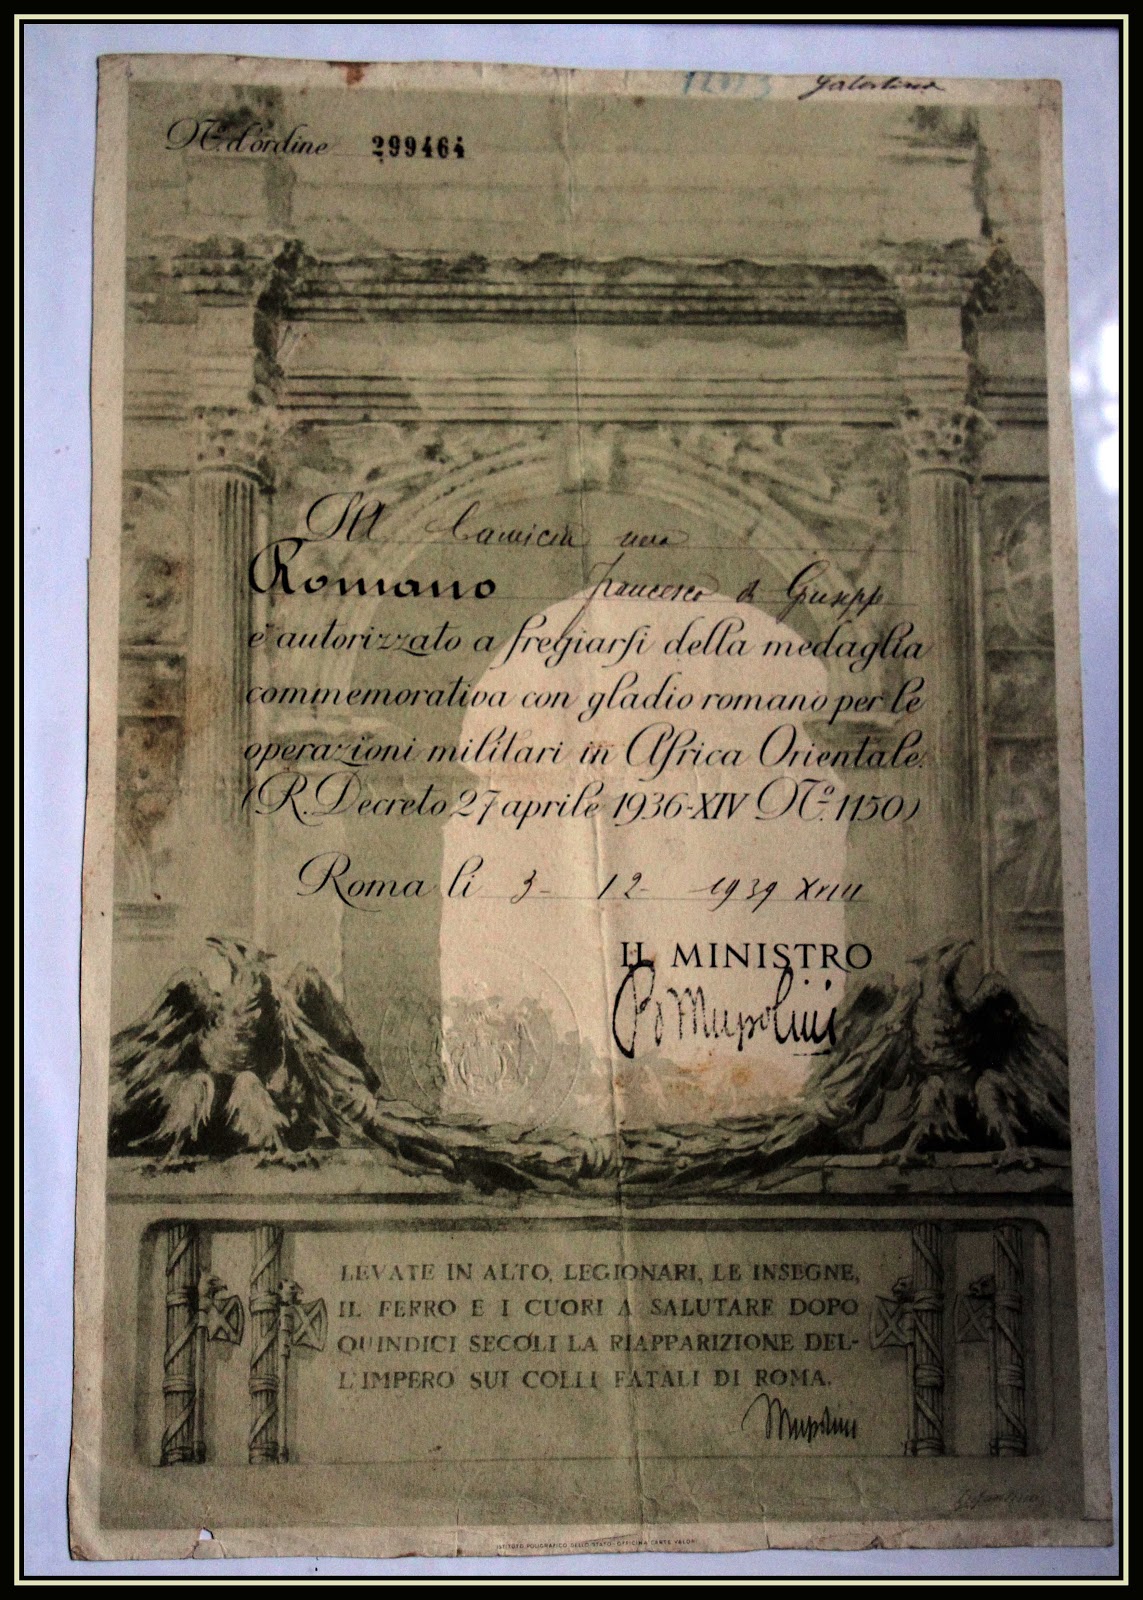 Galatina
N.º d'ordine 299464
Al Camicia nera
Romano Francesco di Giuseppe
è autorizzato a fregiarsi della medaglia
commemorativa con gladio romano per le
operazioni militari in Africa Orientale.
(R. Decreto 27 aprile 1936-XIV N.º 1150)
Roma li 3- 12- 1939 XVIII
IL MINISTRO
Mussolini
LEVATE IN ALTO, LEGIONARI, LE INSEGNE,
IL FERRO E I CUORI A SALUTARE DOPO
QUINDICI SECOLI LA RIAPPARIZIONE DEL-
L'IMPERO SUI COLLI FATALI DI ROMA.
Mussolini
ISTITUTO POLIGRAFICO DELLO STATO - OFFICINA CARTE VALORI